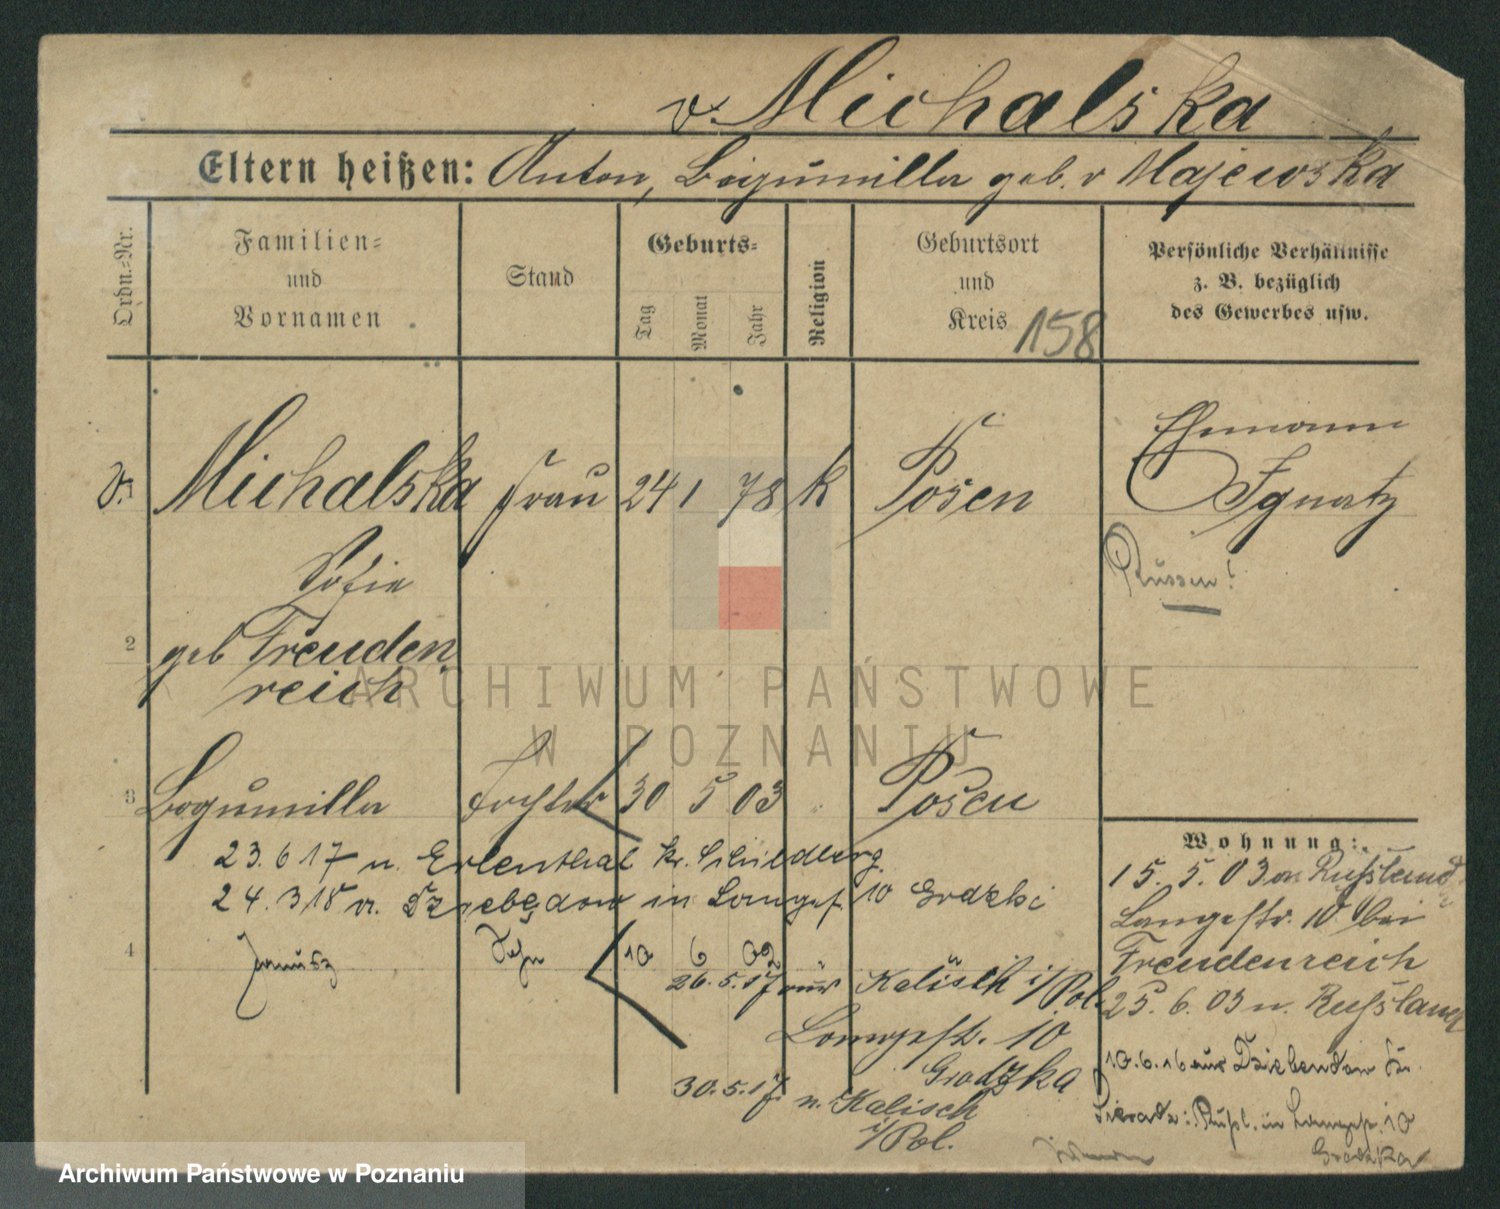 v. Michalska
Eltern heißen: Anton, Bogumilla geb. v Majewska
Ordn.-Nr.
Familien-
und
Vornamen
Stand
Geburts-
Tag
Monat
Jahr
Religion
Geburtsort
und
Kreis
158
Persönliche Verhältnisse
z. B. bezüglich
des Gewerbes usw.
v. 1 Michalska Frau 24 1 78 k Posen
Ehemann
Ignatz
Russen!
Sofie
2 geb Freuden
reich
3 Bogumilla Tochter 30 5 03 Posen
23.6 17 n. Erlenthal kr. Schildberg
24. 3 18 v. in Langestr. 10 Grodzki
4 Janusz Sohn 10 6 02
26.5.17 aus Kalisch i/Pol.
Langestr. 10
Grodzka
30.5.17 n. Kalisch
i/Pol.
Wohnung:
15. 5. 03 von Russland
Langestr. 10 bei
Freudenreich
25. 6. 03 n. Russland
10.6.16 aus
Sieradz: Rußl. in Langestr. 10
Grodzka
ARCHIWUM PAŃSTWOWE
W POZNANIU
Archiwum Państwowe w Poznaniu